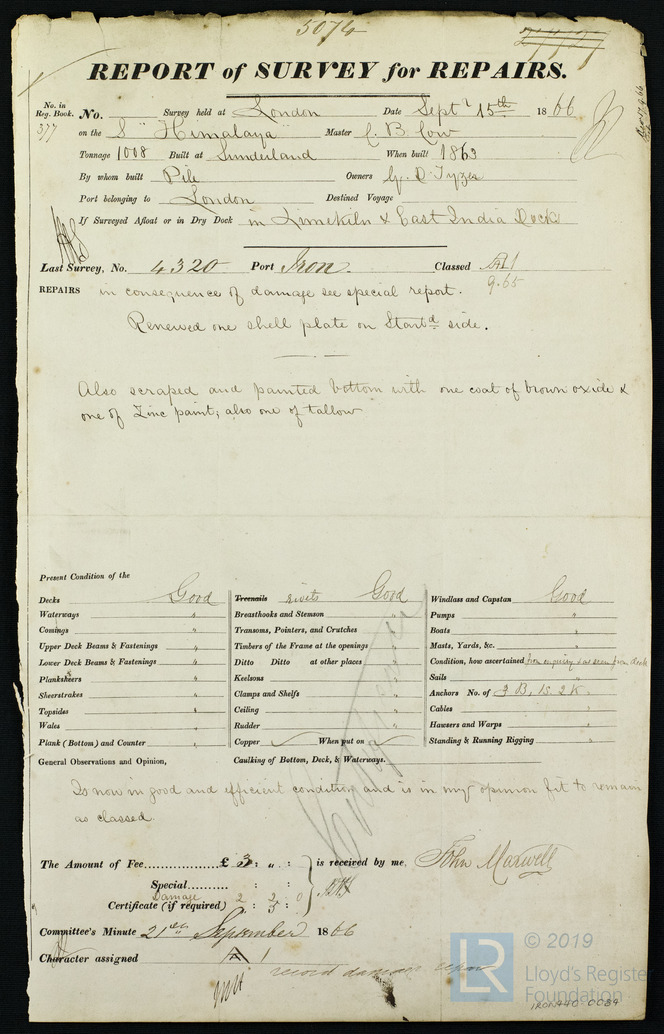 5074
REPORT of SURVEY for REPAIRS.
No. in Reg. Book. No. Survey held at London Date Septr 15th 1866
377 on the S "Himalaya" Master C. B. Cow
Tonnage 1008 Built at Sunderland When built 1863
By whom built Pile Owners G. D Tyzer
Port belonging to London Destined Voyage
If Surveyed Afloat or in Dry Dock in Limekiln & East India Docks
Last Survey, No. 4320 Port Iron. Classed AA1
9.65
REPAIRS in consequence of damage see special report.
Renewed one shell plate on Starbd side.
Also scraped and painted bottom with one coat of brown oxide &
one of Zinc paint; also one of tallow
Present Condition of the
Decks Good Treenails rivets Good Windlass and Capstan Good
Waterways " Breasthooks and Stemson " Pumps "
Comings " Transoms, Pointers, and Crutches " Boats "
Upper Deck Beams & Fastenings " Timbers of the Frame at the openings " Masts, Yards, &c. "
Lower Deck Beams & Fastenings " Ditto Ditto at other places " Condition, how ascertained from enquiry & as seen from deck
Planksheers " Keelsons " Sails "
Sheerstrakes " Clamps and Shelfs " Anchors No. of 3 B, 1 S. 2 K.
Topsides " Ceiling " Cables "
Wales " Rudder " Hawsers and Warps "
Plank (Bottom) and Counter " Copper When put on Standing & Running Rigging "
General Observations and Opinion, Caulking of Bottom, Deck, & Waterways.
Is now in good and efficient condition and is in my opinion fit to remain
as classed.
The Amount of Fee £ 3 : " : is received by me, John Maxwell
Special : :
Damage 2 : 2 : 0
Certificate (if required) : 5 :
Committee's Minute 21st September 1866
Character assigned A 1
record damage repair
© 2019
LR Lloyd's Register
Foundation
IRON440-0089